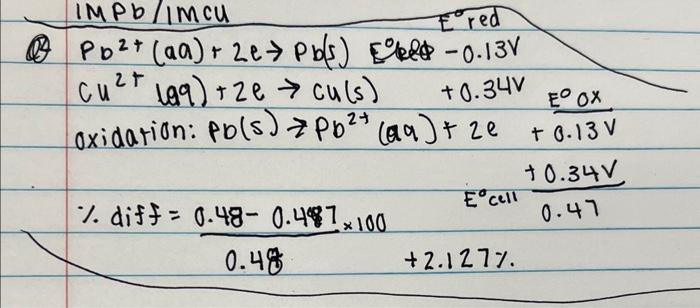 1MPb/1MCu
E°red
Pb²⁺(aq) + 2e → Pb(s) -0.13V
Cu²⁺(aq) + 2e → Cu(s) +0.34V
E°ox
oxidation: Pb(s) → Pb²⁺(aq) + 2e +0.13V
+0.34V
E°cell 0.47
% diff = 0.48 - 0.47 x100
0.48
+2.127%.